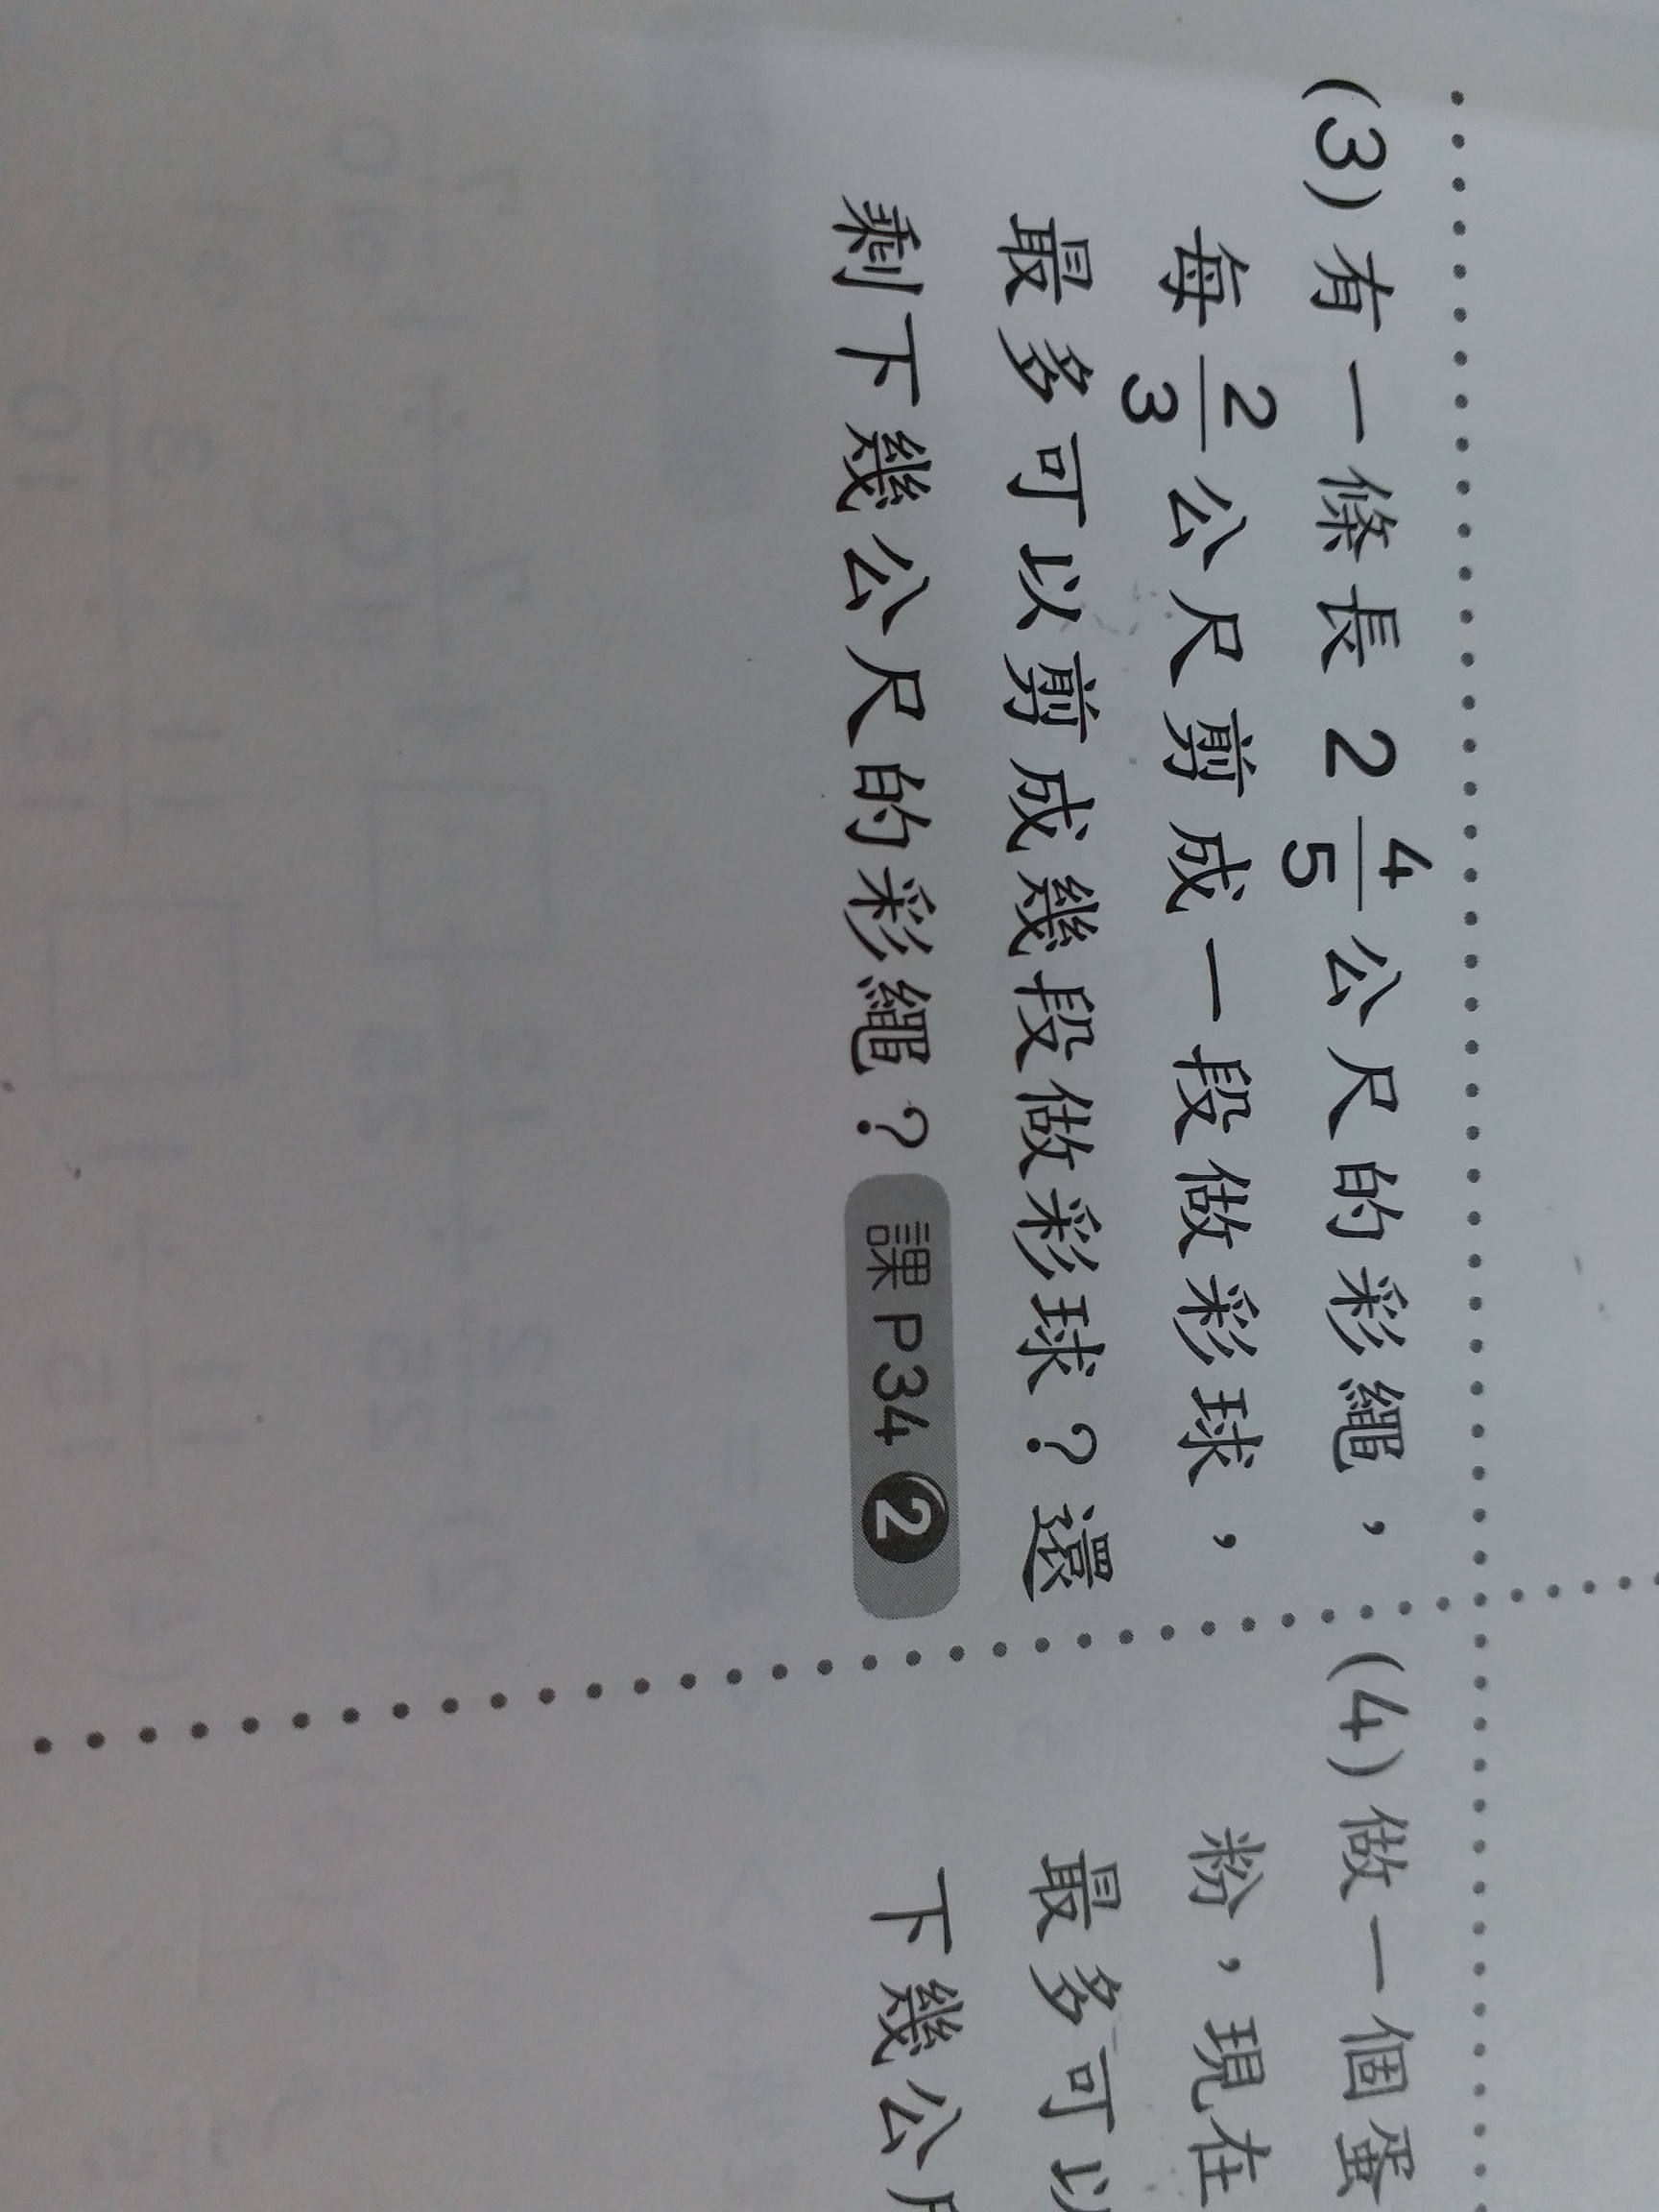 (3) 有一條長 2 4/5 公尺的彩繩，
每 2/3 公尺剪成一段做彩球，
最多可以剪成幾段做彩球？還
剩下幾公尺的彩繩？ 課 P34 2
(4) 做一個蛋
粉，現在
最多可以
下幾公